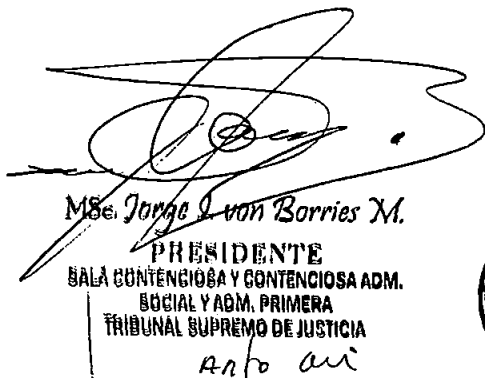 MSc. Jorge I. von Borries M.
PRESIDENTE
SALA CONTENCIOSA Y CONTENCIOSA ADM.
SOCIAL Y ADM. PRIMERA
TRIBUNAL SUPREMO DE JUSTICIA